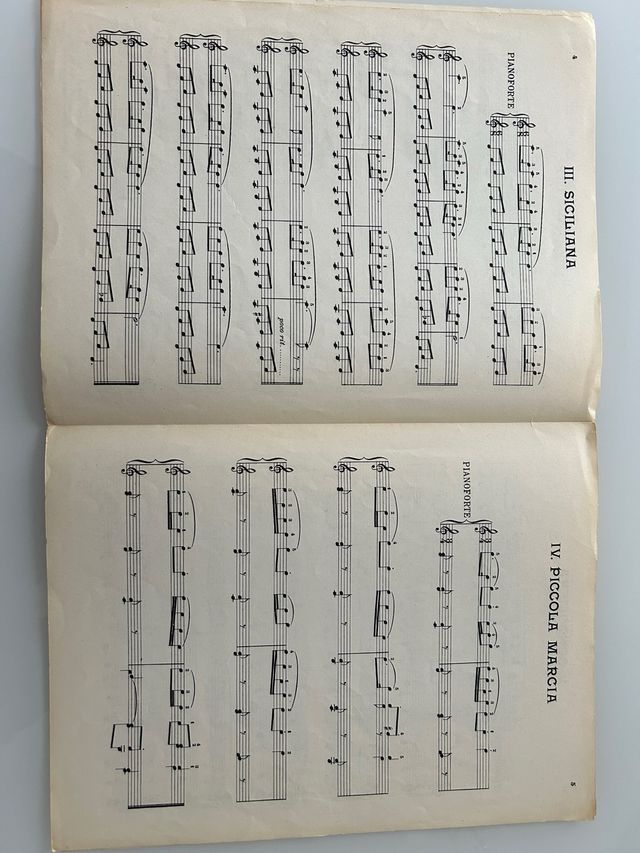 4
III. SICILIANA
PIANOFORTE
poco rit. ...........
5
IV. PICCOLA MARCIA
PIANOFORTE